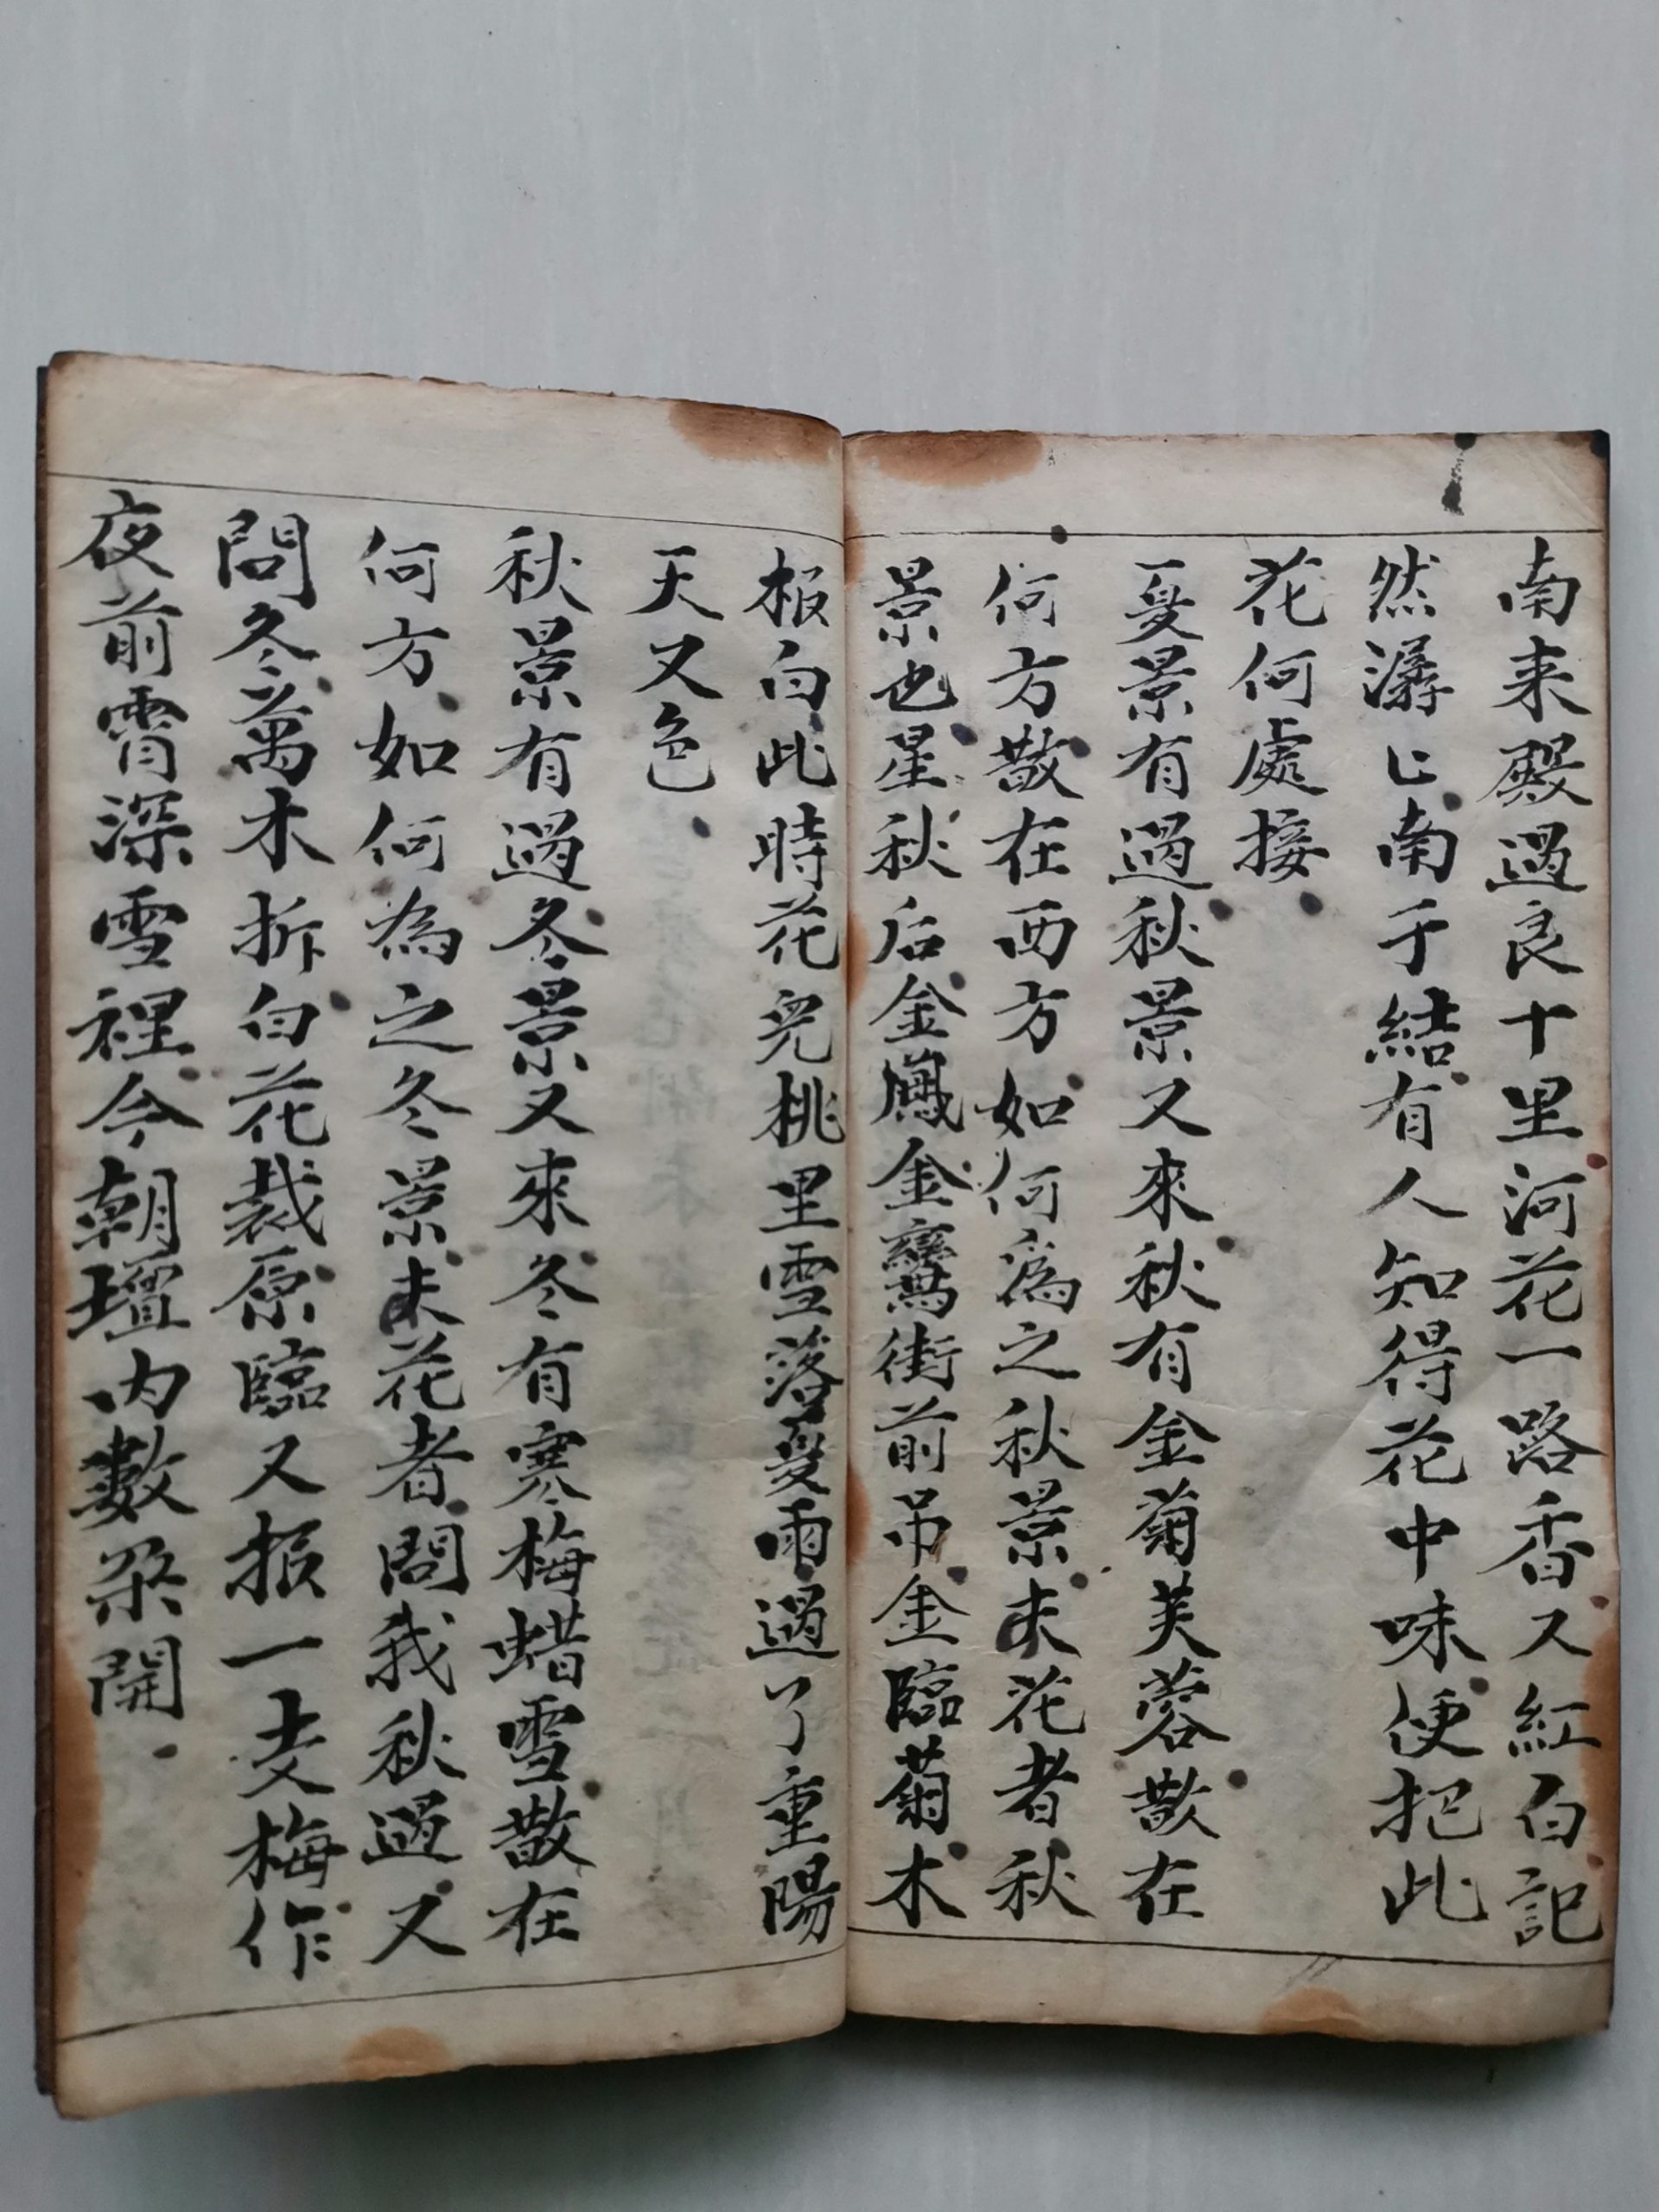 南来殿過良十里河花一路香又紅白記
然潺〻南于結有人知得花中味便把此
花何處接
夏景有過秋景又來秋有金菊芙蓉散在
何方散在西方如何為之秋景未花者秋
景也星秋后金鳳金鸞街前吊金臨菊木
板白此時花兒桃里雪落夏雨過了重陽
天又色
秋景有過冬景又來冬有寒梅蜡雪散在
何方如何為之冬景未花者問我秋過又
問冬萬木拆白花裁原臨又报一支梅作
夜前霄深雪裡今朝壇内數朵開